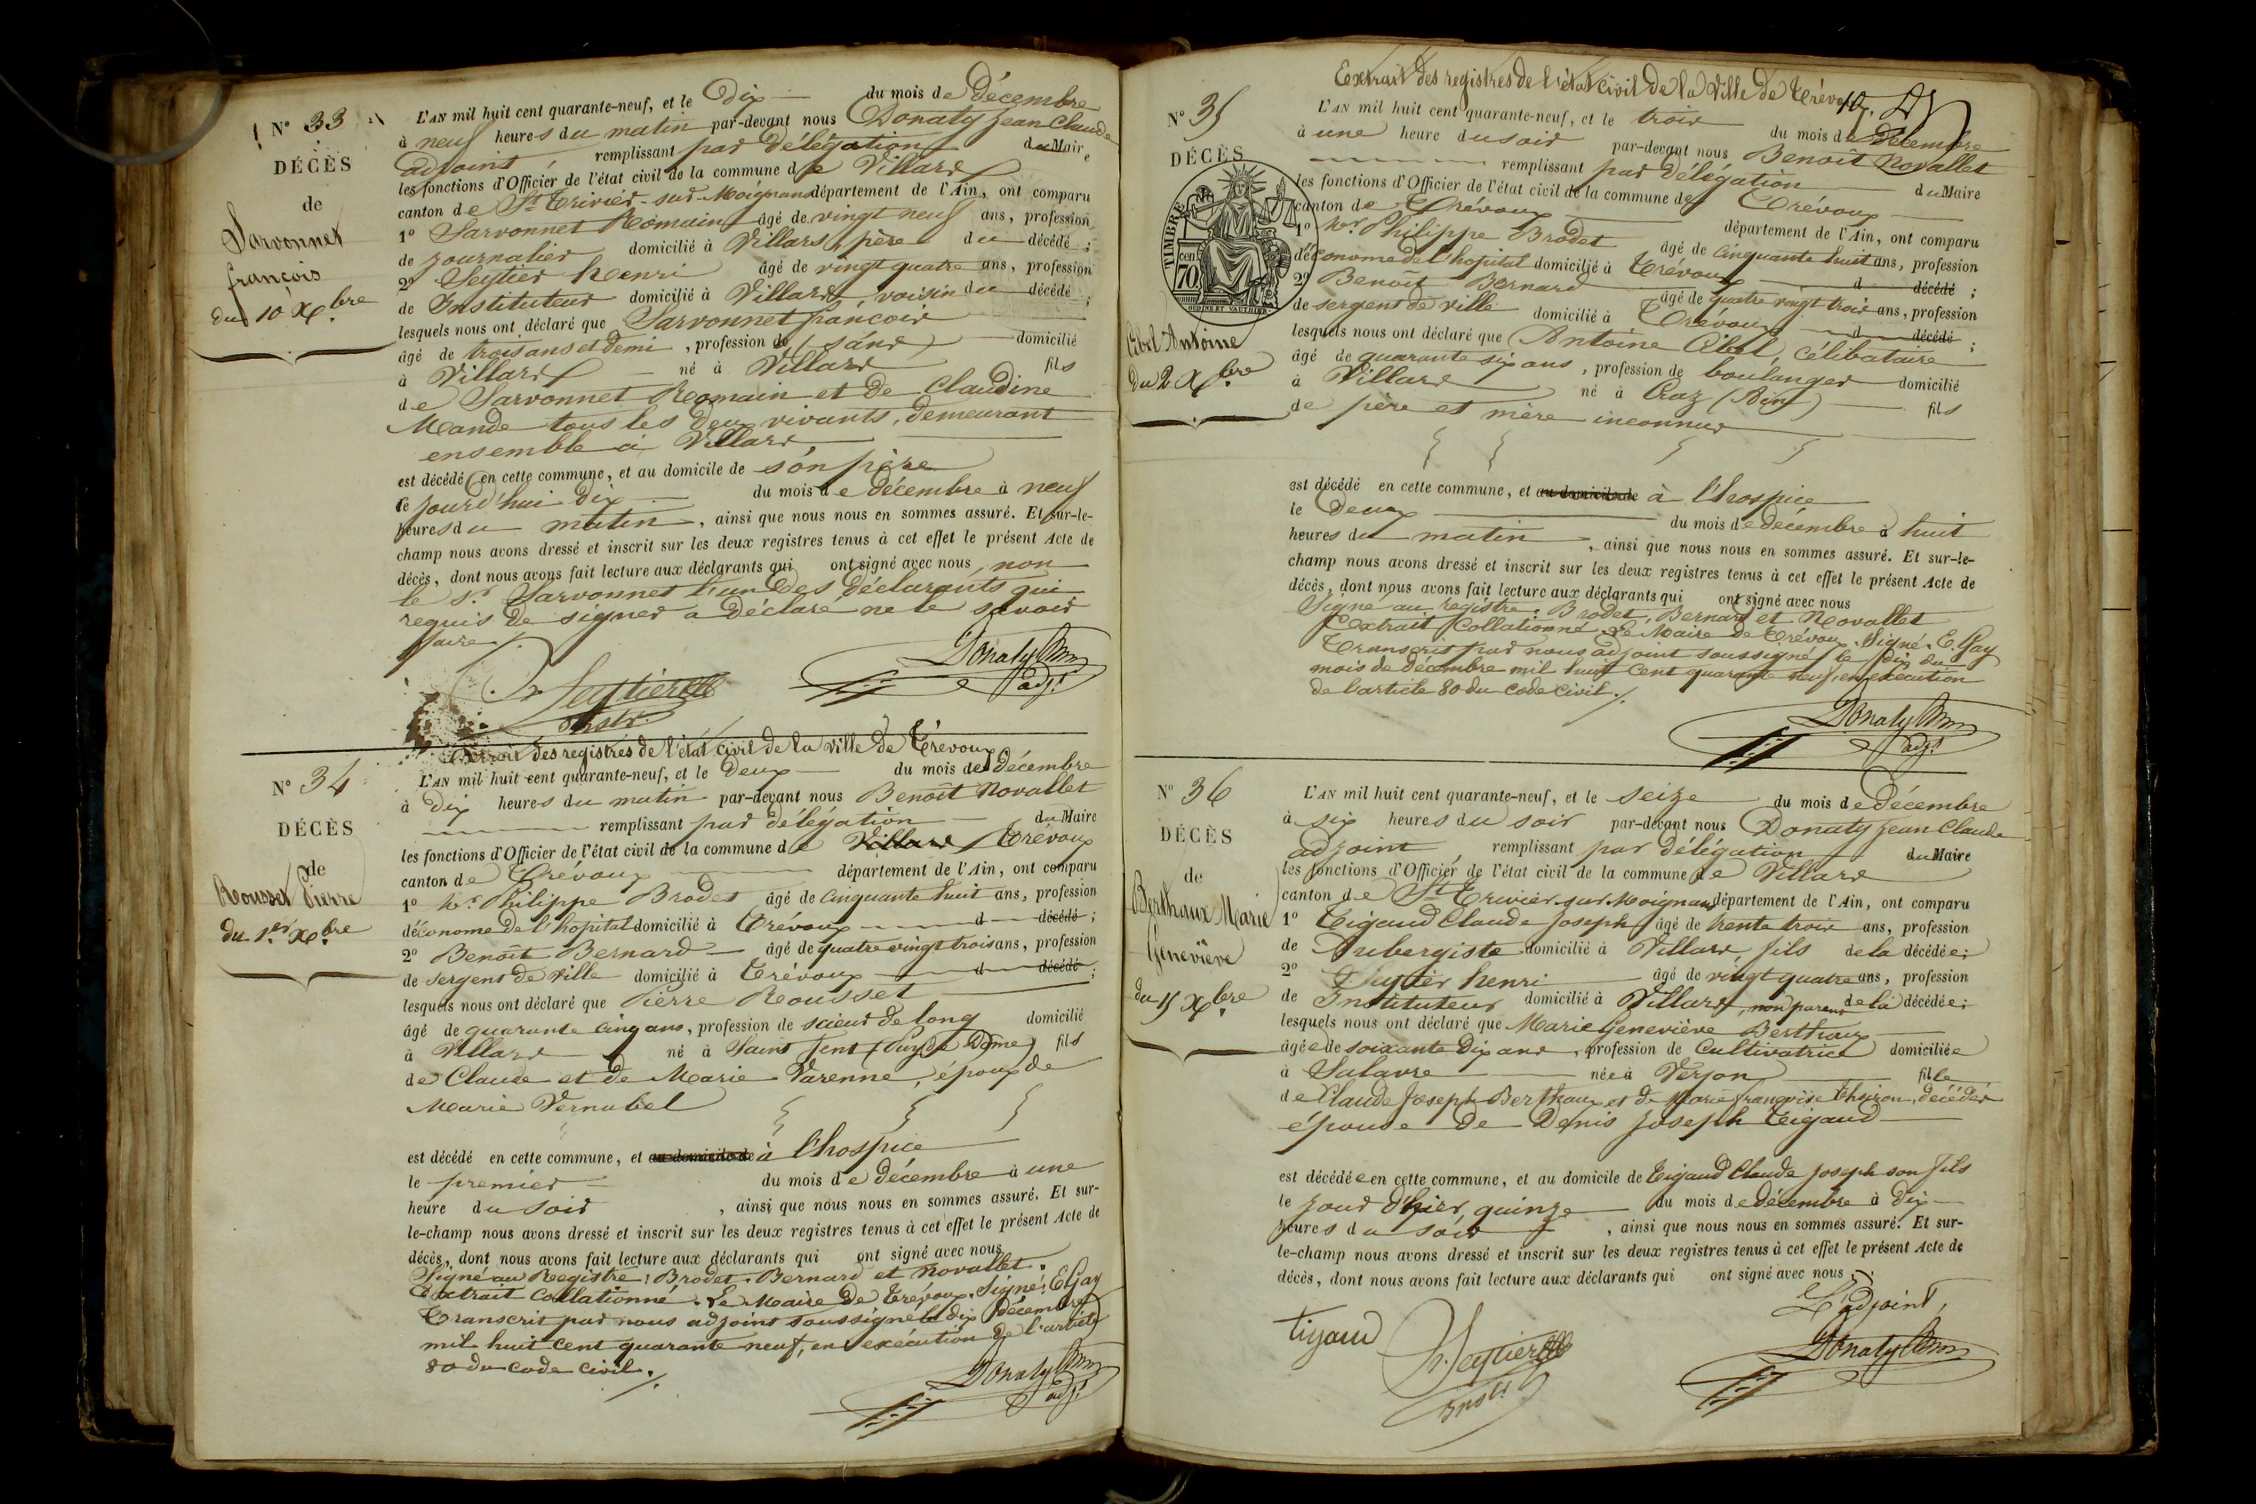 N° 33
DÉCÈS
de
Sarvonnet
françois
du 10 Xbre
L'AN mil huit cent quarante-neuf, et le Dix du mois de Décembre
à neuf heures du matin par-devant nous Donaty Jean Claude
adjoint remplissant par délégation du Maire
les fonctions d'Officier de l'état civil de la commune de Villars
canton de St Trivier-sur-Moignans département de l'Ain, ont comparu
1° Sarvonnet Romain âgé de vingt neuf ans, profession
de journalier domicilié à Villars, père du décédé ;
2° Seytier henri âgé de vingt quatre ans, profession
de Instituteur domicilié à Villars, voisin du décédé ;
lesquels nous ont déclaré que Sarvonnet françois
âgé de trois ans et demi, profession de (sans) domicilié
à Villars né à Villars fils
de Sarvonnet Romain et de Claudine
Mande tous les deux vivants, demeurant
ensemble à Villars
est décédé en cette commune, et au domicile de son père
le jourd'hui dix du mois de décembre à neuf
heures du matin, ainsi que nous nous en sommes assuré. Et sur-le-
champ nous avons dressé et inscrit sur les deux registres tenus à cet effet le présent Acte de
décès, dont nous avons fait lecture aux déclarants qui ont signé avec nous, non
le sr Sarvonnet l'un des déclarants qui
requis de signer a déclaré ne le savoir
faire ./.
h. Seytier
Instr.
Donaty
adjt
N° 34
DÉCÈS
de
Rousset Pierre
du 1er Xbre
Extrait des registres de l'état civil de la ville de Trévoux
L'AN mil huit cent quarante-neuf, et le Deux du mois de décembre
à Dix heures du matin par-devant nous Benoît Novallet
remplissant par délégation du Maire
les fonctions d'Officier de l'état civil de la commune de Villars Trévoux
canton de Trévoux département de l'Ain, ont comparu
1° Mr. Philippe Brodet âgé de cinquante huit ans, profession
d'économe de l'hopital domicilié à Trévoux d décédé ;
2° Benoît Bernard âgé de quatre vingt trois ans, profession
de sergent de ville domicilié à Trévoux d décédé ;
lesquels nous ont déclaré que Pierre Rousset
âgé de quarante cinq ans, profession de scieur de long domicilié
à Villars né à Saint Jent (Puy de Dôme) fils
de Claude et de Marie Varenne, époux de
Marie Vernabel
est décédé en cette commune, et au domicile de à l'hospice
le premier du mois de décembre à une
heure du soir, ainsi que nous nous en sommes assuré. Et sur-
le-champ nous avons dressé et inscrit sur les deux registres tenus à cet effet le présent Acte de
décès, dont nous avons fait lecture aux déclarants qui ont signé avec nous
Signé au Registre : Brodet, Bernard et Novallet.
Extrait Collationné. Le Maire de Trévoux. Signé : E. Gay
Transcrit par nous adjoint soussigné le dix décembre
mil huit cent quarante neuf, en exécution de l'article
80 du code civil ./.
Donaty
adjt
Extrait des registres de l'état civil de la Ville de Trévoux
10.
N° 35
DÉCÈS
TIMBRE
cen
70
Abel Antoine
du 2 Xbre
L'AN mil huit cent quarante-neuf, et le trois du mois de Décembre
à une heure du soir par-devant nous Benoît Novallet
remplissant par délégation du Maire
les fonctions d'Officier de l'état civil de la commune de Trévoux
canton de Trévoux département de l'Ain, ont comparu
1° Mr. Philippe Brodet âgé de cinquante huit ans, profession
d'économe de l'hopital domicilié à Trévoux d décédé ;
2° Benoît Bernard âgé de quatre vingt trois ans, profession
de sergent de ville domicilié à Trévoux d décédé ;
lesquels nous ont déclaré que Antoine Abel, célibataire
âgé de quarante six ans, profession de boulanger domicilié
à Villars né à Craz (Ain) fils
de père et mère inconnus
est décédé en cette commune, et au domicile de à l'hospice
le Deux du mois de décembre à huit
heures du matin, ainsi que nous nous en sommes assuré. Et sur-le-
champ nous avons dressé et inscrit sur les deux registres tenus à cet effet le présent Acte de
décès, dont nous avons fait lecture aux déclarants qui ont signé avec nous
Signé au registre : Brodet, Bernard et Novallet
Extrait Collationné. Le Maire de Trévoux. Signé. E. Gay
Transcrit par nous adjoint soussigné le dix du
mois de décembre mil huit cent quarante neuf, en exécution
de l'article 80 du code civil ./.
Donaty
adjt
N° 36
DÉCÈS
de
Berthaux Marie
Geneviève
du 15 Xbre
L'AN mil huit cent quarante-neuf, et le seize du mois de Décembre
à six heures du soir par-devant nous Donaty Jean Claude
adjoint remplissant par délégation du Maire
les fonctions d'Officier de l'état civil de la commune de Villars
canton de St Trivier-sur-Moignans département de l'Ain, ont comparu
1° Tigaud Claude Joseph âgé de trente trois ans, profession
de Aubergiste domicilié à Villars, fils de la décédée ;
2° Seytier henri âgé de vingt quatre ans, profession
de Instituteur domicilié à Villars, non parent de la décédée ;
lesquels nous ont déclaré que Marie Geneviève Berthaux
âgée de soixante dix ans, profession de Cultivatrice domiciliée
à Salavre née à Verjon fille
de Claude Joseph Berthaux et de Marie françoise Thuiron, décédés
épouse de Denis Joseph Tigaud
est décédée en cette commune, et au domicile de Tigaud Claude Joseph son fils
le jour d'hier quinze du mois de décembre à dix
heures du soir, ainsi que nous nous en sommes assuré. Et sur-
le-champ nous avons dressé et inscrit sur les deux registres tenus à cet effet le présent Acte de
décès, dont nous avons fait lecture aux déclarants qui ont signé avec nous.
L'adjoint,
tigaud
h. Seytier
Instr
Donaty